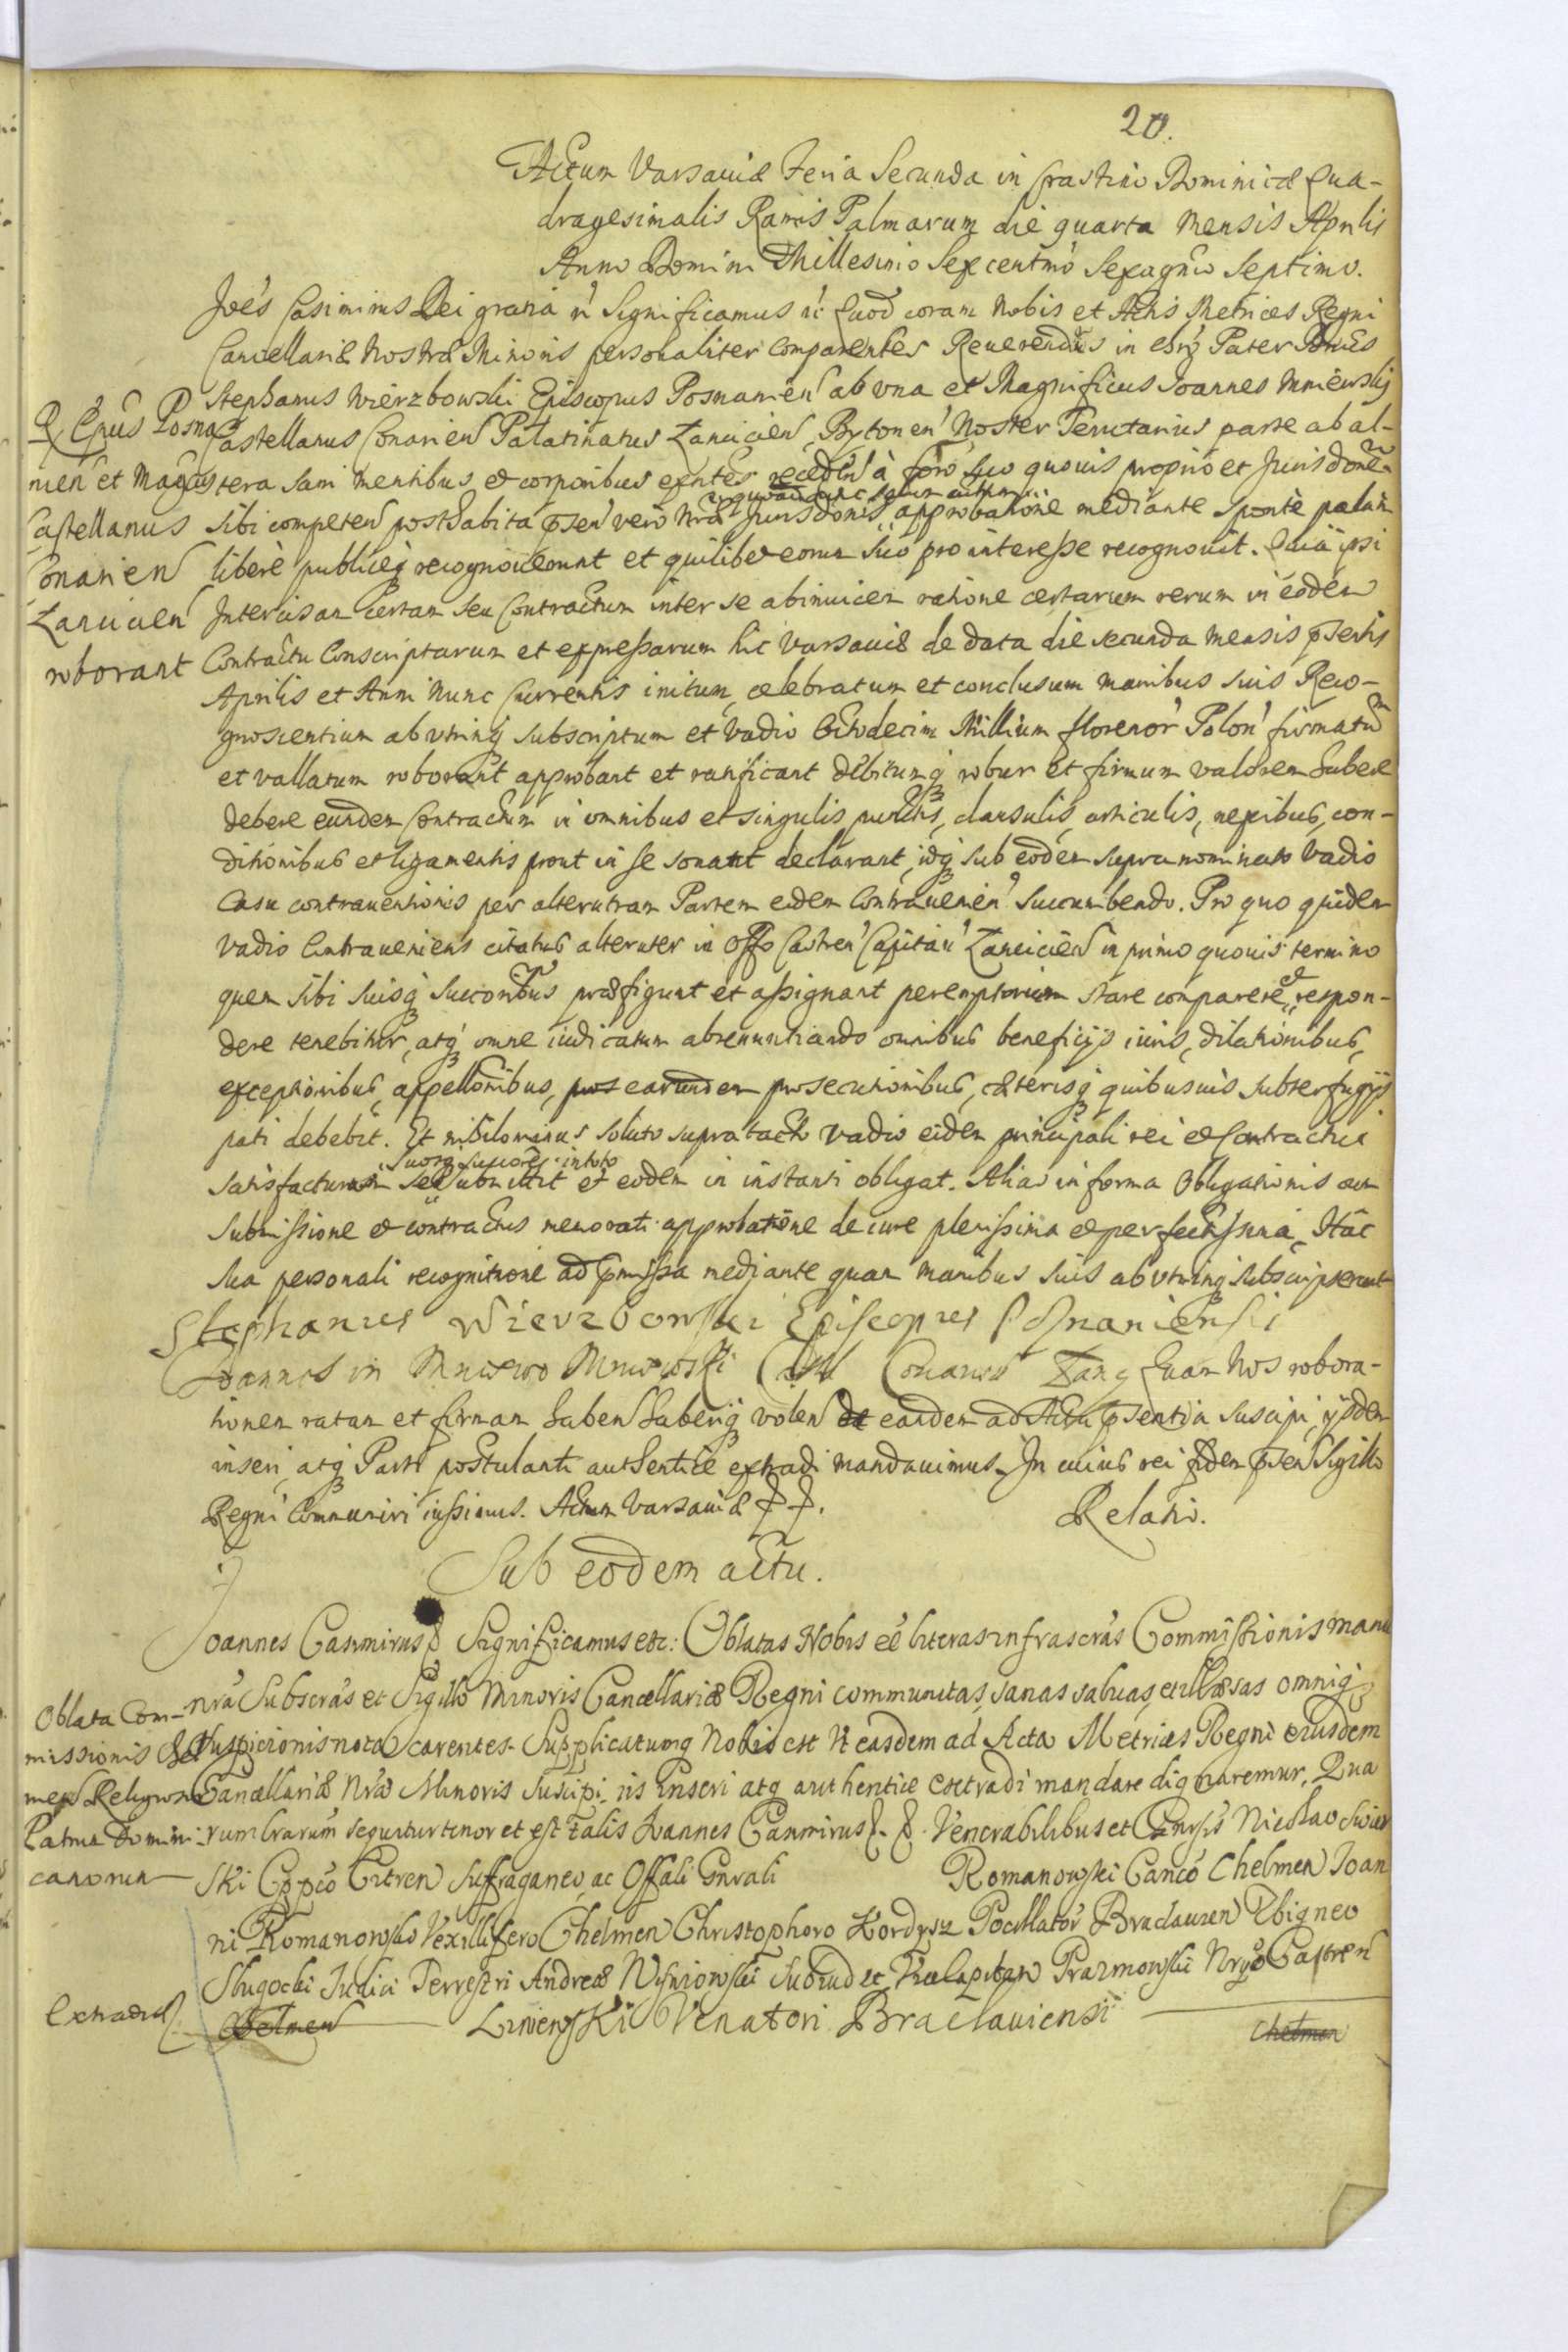 20.
Actum Varsauiæ Feria Secunda in Crastino Dominicæ Qua-
dragesimalis Ramis Palmarum die quarta Mensis Aprilis
Anno Domini Millesimo Sexcentmo Sexagmo Septimo.
Joes Casimirus Dei gratia Significamus Quod coram Nobis et Actis Metrices Regni
Cancellariæ Nostræ Minoris personaliter Comparentes Reuerendus in Pater Dnus
Stephanus Wierzbowski Episcopus Posnanien ab vna et Magnificus Joannes Mniewskij
R Epus Posna-
Castellanus Conarien Palatinatus Lancicien, Bytonen Noster parte ab al-
nien et Magcus
tera sani mentibus et corporibus exntes receden à foro suo quouis proprio et Jurisdone
Castellanus
sibi competen posthabita psen vero Nræ Jurisdonis approbatione mediante sponte palam
Conarien
libere publiceq recognouerunt et quilibet eorum suo pro interesse recognouit. Quia ipsi
Lancicien
Intercisam certam seu Contractum inter se abinuicem ratione certarum rerum in eodem
roborant
Contractu Conscriptarum et expressarum hic Varsauiæ de data die secunda Mensis psentis
Aprilis et Anni Nunc Currentis initum, celebratum et conclusum manibus suis Reco-
gnoscentium ab vtrinq subscriptum et Vadio Octodecim Millium florenor Polon firmatum
et vallatum roborant approbant et ratificant debitumq robur et firmum valorem habere
debere eundem Contractum in omnibus et singulis punctis, clausulis, articulis, nexibus, con-
ditionibus et ligamentis prout in se sonant declarant, idq sub eodem supra nominato Vadio
Casu contrauentionis per alterutram Partem eidem Contrauenien Succumbendo. Pro quo quidem
Vadio Contraueniens citatus alteruter in Offo Castren Capitan Lancicien in primo quouis termino
quem sibi suisq Succoribus præfigunt et assignant peremptorium stare comparere et respon-
dere tenebitur, atq omne iudicatum abrenuntiando omnibus beneficijs iuris, dilationibus,
exceptionibus, appellonibus, earundem prosecutionibus, cæterisq quibusuis subterfugijs
pati debebit. Et nihilominus soluto supratacto Vadio eidem principali rei et Contractui
suosq succores in toto
satisfacturum se submittit et eodem in instanti obligat. Alias in forma Obligationis cum
submissione et contractus memorati approbatione de iure plenissima et perfectissima, Hac
sua personali recognitione ad pmissa mediante quam manibus suis ab vtrinq subscripserunt
Stephanus Wierzbowski Episcopus Posnaniensis
Joannes in Mniewo Mniewski Cast Conarien Quam Nos robora-
tionem ratam et firmam haben haberiq volen eandem ad Acta psentia suscipi, ijsdem
inseri, atq Parti postulanti authentice extradi mandauimus. In cuius rei fidem psen Sigillo
Regni Communiri iussimus. Actum Varsauiæ
Relatio.
Sub eodem actu.
Joannes Casimirus Significamus etc: Oblatas Nobis eē literas infrascras Commissionis manu
nra Subscras et Sigillo Minoris Cancellariæ Regni communitas, sanas saluas et illæsas omniq
Oblata Com-
missionis
suspicionis nota carentes. Supplicatumq Nobis est vt easdem ad Acta Metrices Regni eiusdem
Cancellariæ Nræ Minoris suscipi, iis inseri atq authentice extradi mandare dignaremur. Qua
Patrum Domini-
rum lrarum sequitur tenor et est talis Joannes Casimirus. Venerabilibus et Gnrsis Nicolao Swier
canorum
ski Eppo Citren Suffraganeo, ac Offali Gnrali Romanowski Canco Chelmen Joan
ni Romanowski Vexillifero Chelmen Christophoro Kordysz Pocillatori Braclauien Zbigneo
Slugocki Judici Terrestri Andreæ Wysniowski Subiud et Vicecapitan Prazmowski Castren
Extradit
Chelmen Liniewski Venatori Braclauiensi Chelmen